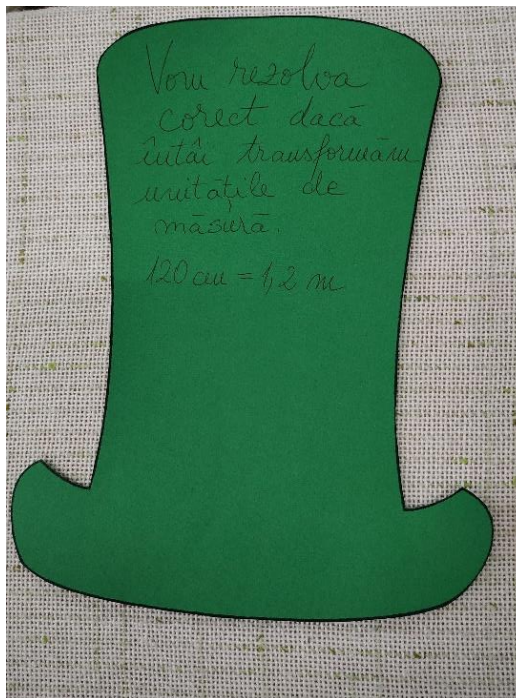 Vom rezolva
corect dacă
întâi transformăm
unitățile de
măsură.
120 cm = 1,2 m